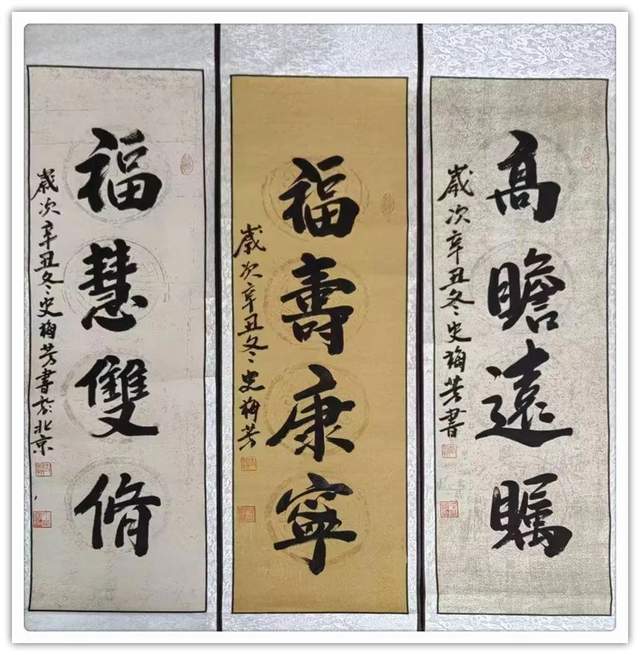 高瞻遠矚
歲次辛丑冬史梅芳書
福壽康寧
歲次辛丑冬史梅芳
福慧雙脩
歲次辛丑冬史梅芳書於北京